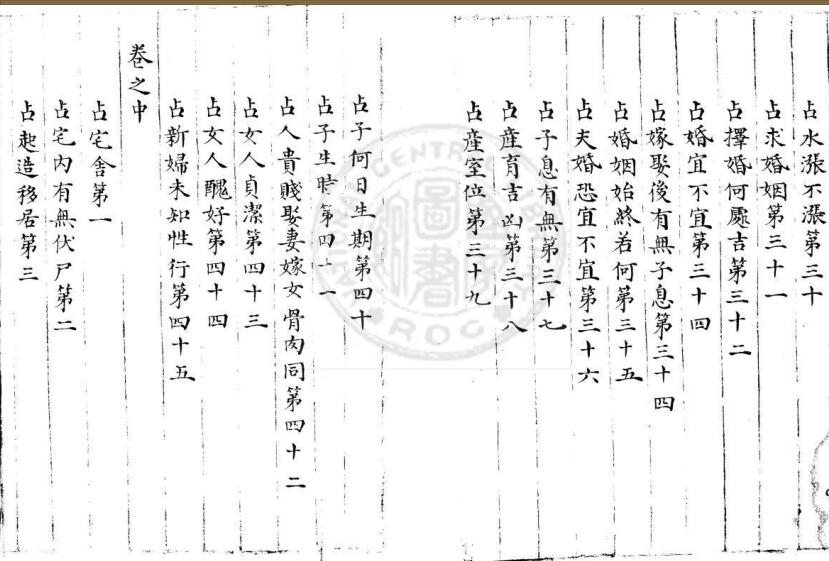 占水漲不漲第三十
占求婚姻第三十一
占擇婚何處吉第三十二
占婚宜不宜第三十四
占嫁娶後有無子息第三十四
占婚姻始終若何第三十五
占夫婚恐宜不宜第三十六
占子息有無第三十七
占產育吉凶第三十八
占產室位第三十九
占子何日生期第四十
占子生時第四十一
占人貴賤娶妻嫁女骨肉同第四十二
占女人貞潔第四十三
占女人醜好第四十四
占新婦未知性行第四十五
卷之中
占宅舍第一
占宅內有無伏尸第二
占起造移居第三